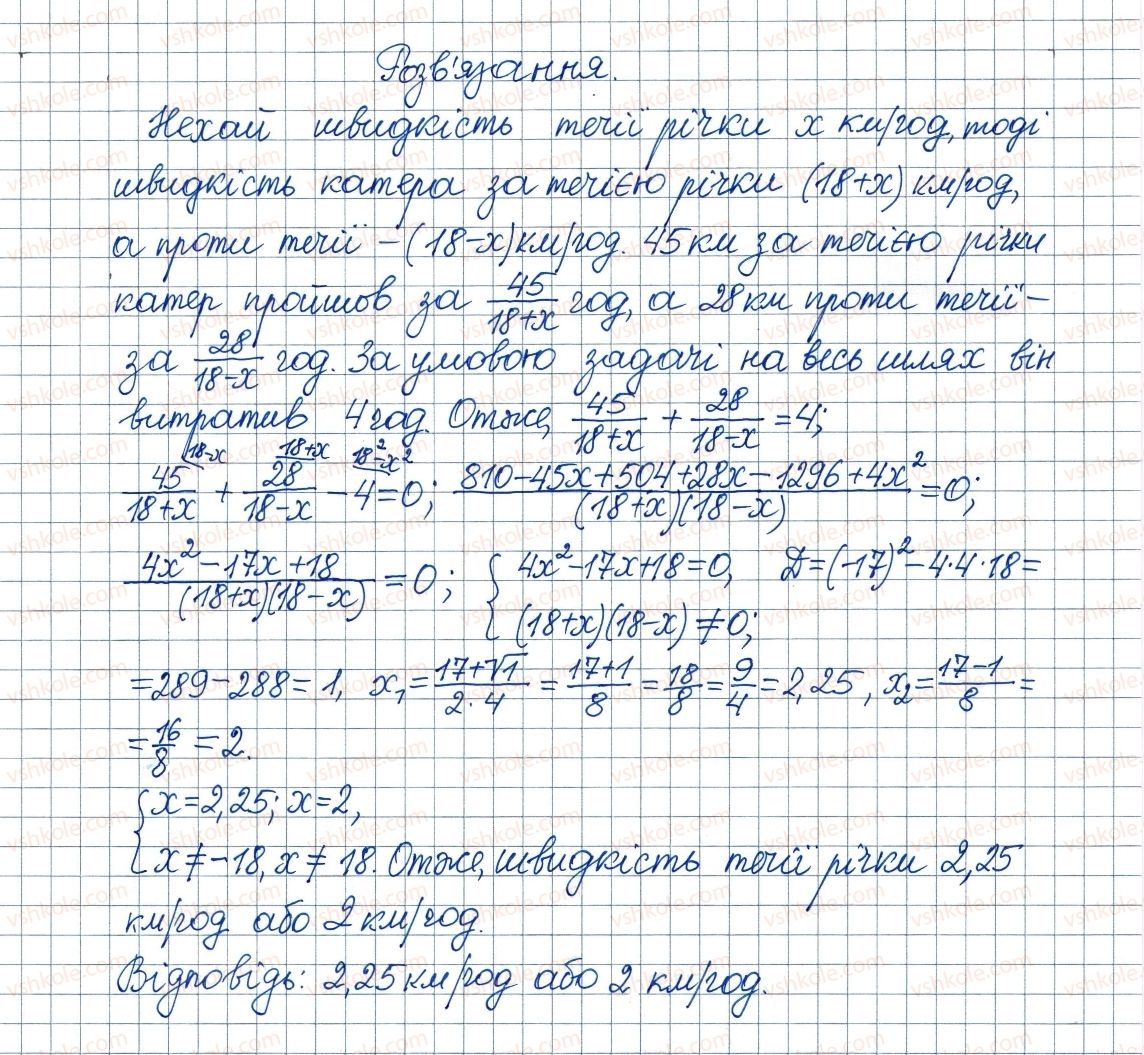 Розв'язання.
Нехай швидкість течії річки x км/год, тоді
швидкість катера за течією річки (18+x) км/год,
а проти течії – (18-x) км/год. 45 км за течією річки
катер пройшов за 45/(18+x) год, а 28 км проти течії –
за 28/(18-x) год. За умовою задачі на весь шлях він
витратив 4 год. Отже, 45/(18+x) + 28/(18-x) = 4;
18-x 18+x 18²-x²
45/(18+x) + 28/(18-x) - 4 = 0; (810-45x+504+28x-1296+4x²)/((18+x)(18-x)) = 0;
(4x²-17x+18)/((18+x)(18-x)) = 0; { 4x²-17x+18=0, D=(-17)²-4·4·18=
(18+x)(18-x)≠0;
=289-288=1, x₁=(17+√1)/(2·4)=(17+1)/8=18/8=9/4=2,25, x₂=(17-1)/8=
=16/8=2.
{ x=2,25; x=2,
x≠-18, x≠18. Отже, швидкість течії річки 2,25
км/год або 2 км/год.
Відповідь: 2,25 км/год або 2 км/год.
vshkole.com